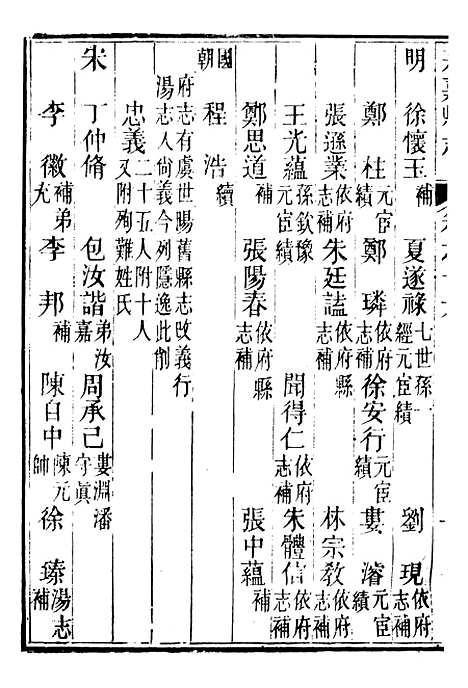 明　徐懷玉補　夏遂祿七世孫經元宦績　劉現依府志補
鄭柱元宦績　鄭璘依府志補　徐安行元宦績　婁濬元宦績
張遜業依府志補　朱廷諡依府縣志補　林宗教依府志補
王光蘊孫欽豫元宦績　聞得仁依府志補　朱體信依府志補
鄭思道補　張陽春依府縣志補　張中蘊補
國朝　程浩續
府志有虞世賜舊縣志改義行
湯志入尙義今列隱逸此削
忠義二十五人附十人又附殉難姓氏
宋　丁仲脩　包汝諧弟汝嘉　周承己婁淵潘守眞
李徽補弟允　李邦補　陳自中陳元帥　徐臻湯志補